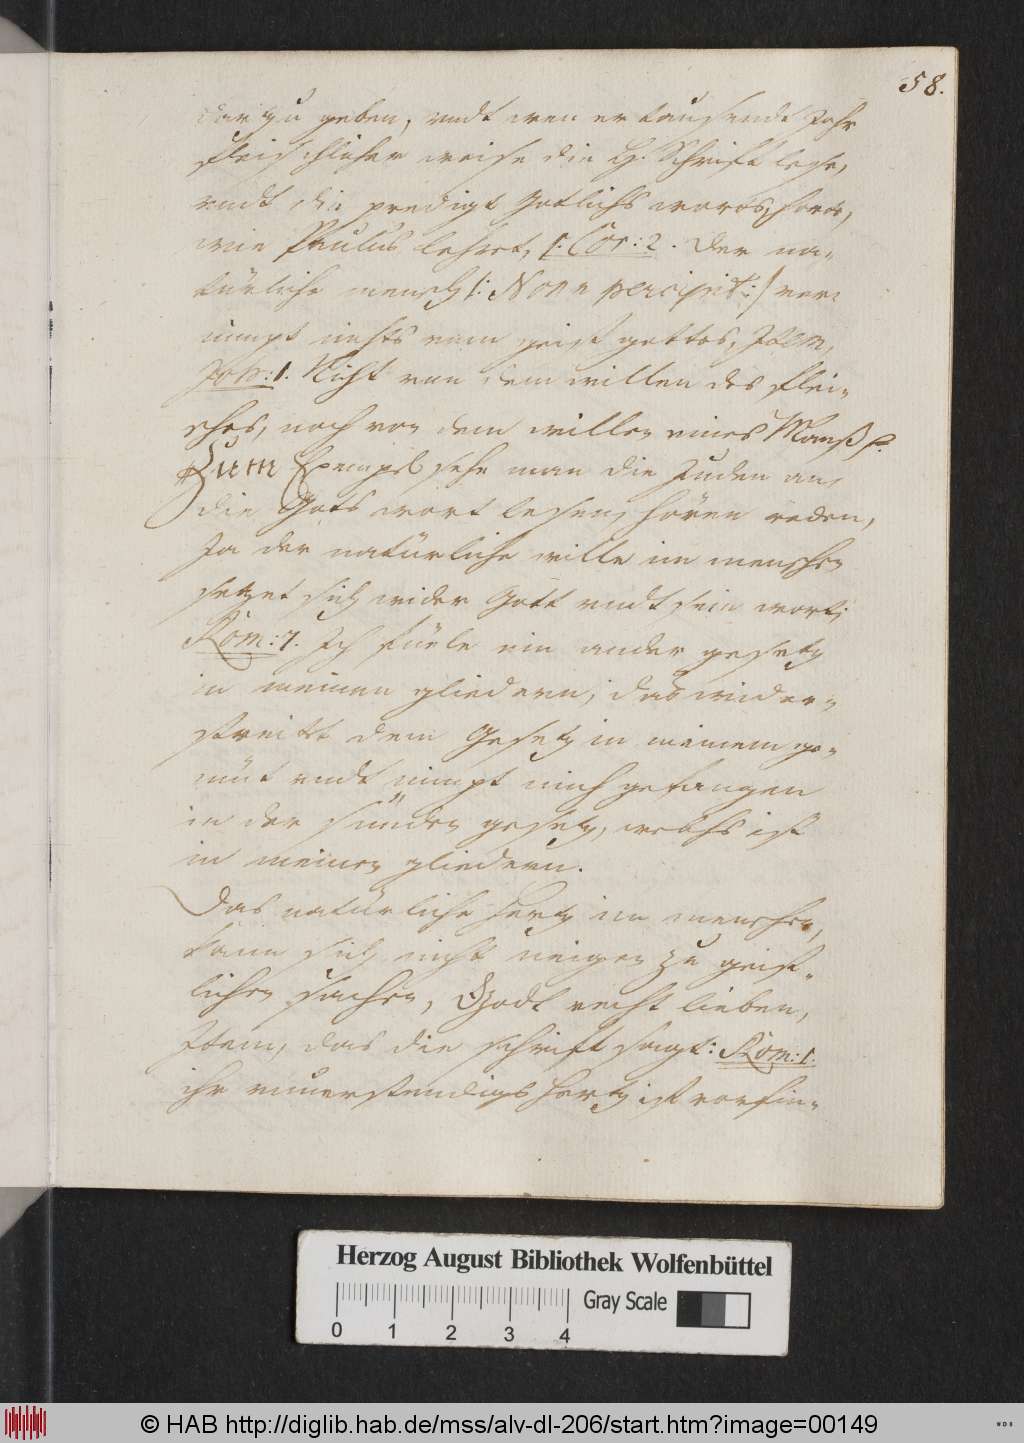 58.
dar zu geben, undt wen er tausendt Jahr
fleischlicher weise die H. Schrifft lese,
undt die predigt Gotlichs worts, horte,
wie Paulus lehret, 1. Cor: 2. Der na-
türliche mensch /: Non percipit :/ ver-
nimpt nichts vom geist gottes, Item,
Joh: 1. Nicht von dem willen des flei-
sches, noch von dem willen eines Manß p.
Zum Exempel sehe man die Juden an,
die Gots wort lesen, hören reden,
Ja der natürliche wille im menschen
setzet sich wider Gott undt sein wort,
Rom: 7. Ich füele ein ander gesetz
in meinen gliedern, das wider-
streitt dem Gesetz in meinem ge-
müt undt nimpt mich gefangen
in der sünden gesetz, welchs ist
in meinen gliedern.
Das natürliche hertz im menschen,
kann sich nicht neigen zu geist-
lichen sachen, Godt recht lieben,
Item, das die schrifft sagt: Rom: 1.
ihr unverstendigs hertz ist verfin-
Herzog August Bibliothek Wolfenbüttel
0 1 2 3 4
Gray Scale
© HAB http://diglib.hab.de/mss/alv-dl-206/start.htm?image=00149